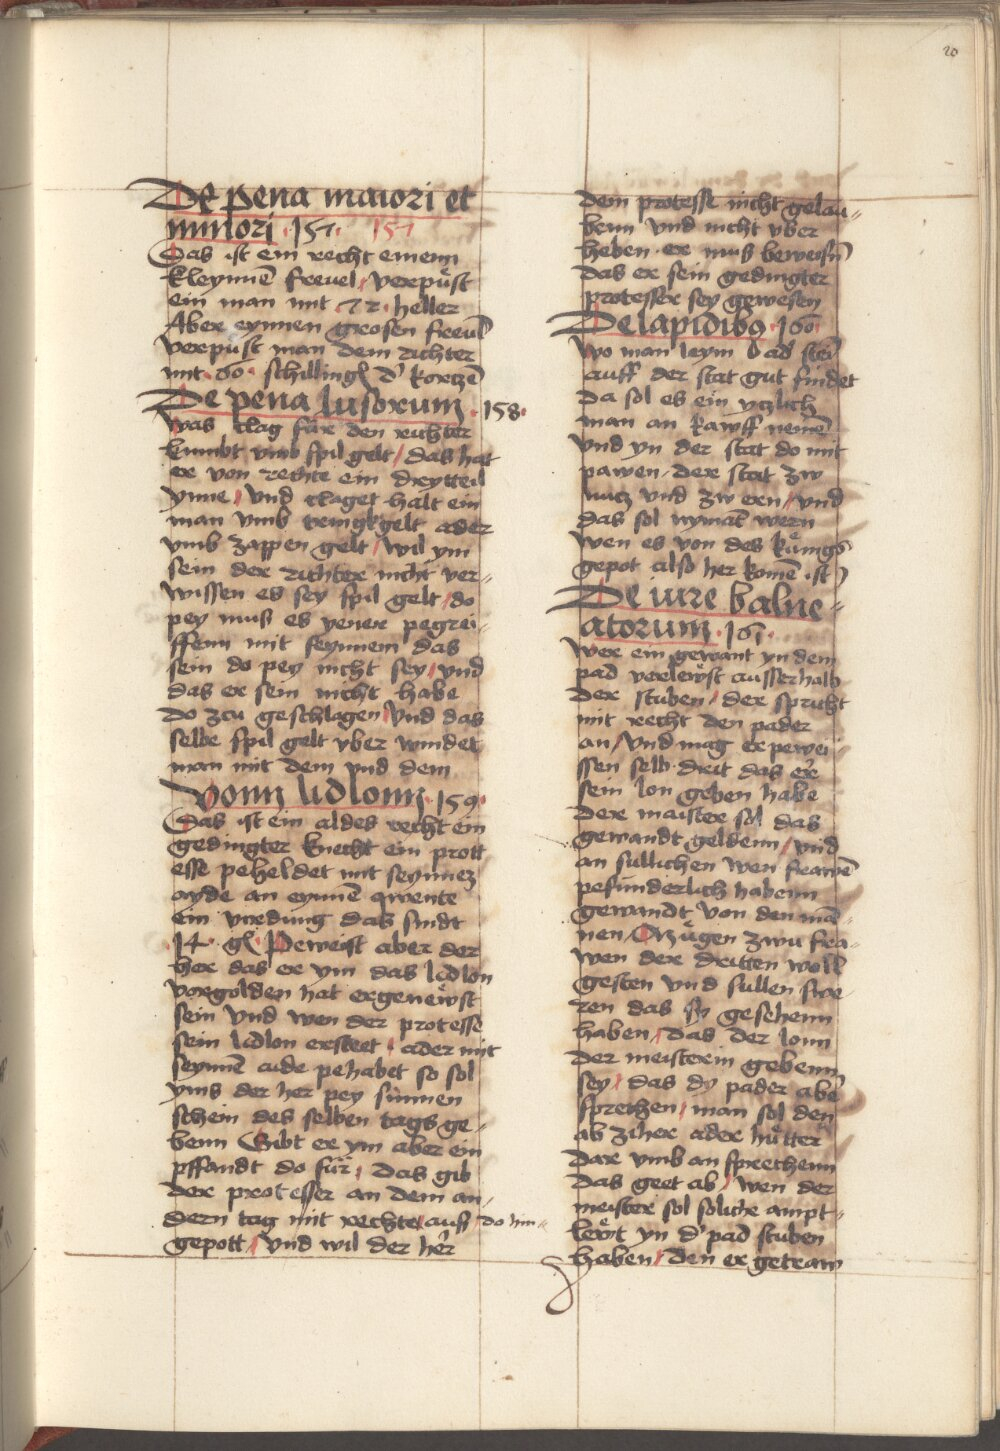 20
De pena maiori et
minori · 157 · 157
Das ist ein recht einem
kleynnē frevel / verpüst
ein man mit · 72 · heller
Aber eynnen grosen frevel
verpüst man dem richter
mit · 60 · schilling d' kortzē
De pena lusorum · 158 ·
was clag für den richter
kumbt vmb spil gelt / das hat
er von rechte ein dryttteil
ynne / vnd claget halt ein
man vmb tringkgelt ader
vmb zappen gelt / wil ym
sein der richter nicht ver-
wissen es sey spil gelt / do
pey mus es yener pegrei-
ffenn mit seynnem das
sein do pey nicht sey / vnd
das er sein nicht habe
do zcu geschlagen / Vnd das
selbe spil gelt vber windet
man mit dem vnd dem
Vonn lidlonn · 159 ·
Das ist ein aldes recht ein
gedingter knecht ein prott
esse peheldet mit seynnez
ayde an eynnē qwente
ein vierdung das sindt
· 14 · gl · Peweist aber der
her das er ym das lidlon
vorgolden hat er genewst
sein vnd wen der protesse
sein lidlon ersteet / ader mit
seynnē aide pehabet so sol
yms der her pey sunnen
schein des selben tags ge-
benn Gibt er ym aber ein
pffandt do für / Das gib
der protesser an dem an-
dern tag mit rechte auff / do hin-
gepott / vnd wil der her
dem protesse nicht gelau-
benn vnd nicht vber
heben · er mus beweisn
das er sein gedingter
protesser sey gewesen
De lapidibus · 160 ·
Wo man leym ad' stei
auff der stat gut findet
da sol es ein yczlich
man an kawff nemē
vnd yn der stat do mit
pawen · der stat zw
nutz vnd zw ern / vnd
das sol nymāt wern
wen es von des künigs
gepot also her komē ist
De iure balne-
atorum · 161 ·
Wer ein gewant yn dem
pad verlewst ausserhalb
der stuben / der spricht
mit recht den pader
an / vnd mag er pewei
ssen selb drit das er
sein lon geben habe
der maister sol das
gewandt geldenn / vnd
an sullichen wen frawē
pesunderlich habenn
gewandt von den man-
nen / Erzügen zwu fra-
wen der dritten woll
gesten vnd sullen swe-
ren das sy gesehenn
haben / das der lonn
der meisterin gebenn
sey / das dy pader abē
sprechen / man sol den
ab ziher ader hütter
dar vmb an sprechenn
das geet ab / wen der
meister sol soliche ampt-
lewt yn d' pad stuben
haben / den er getraw